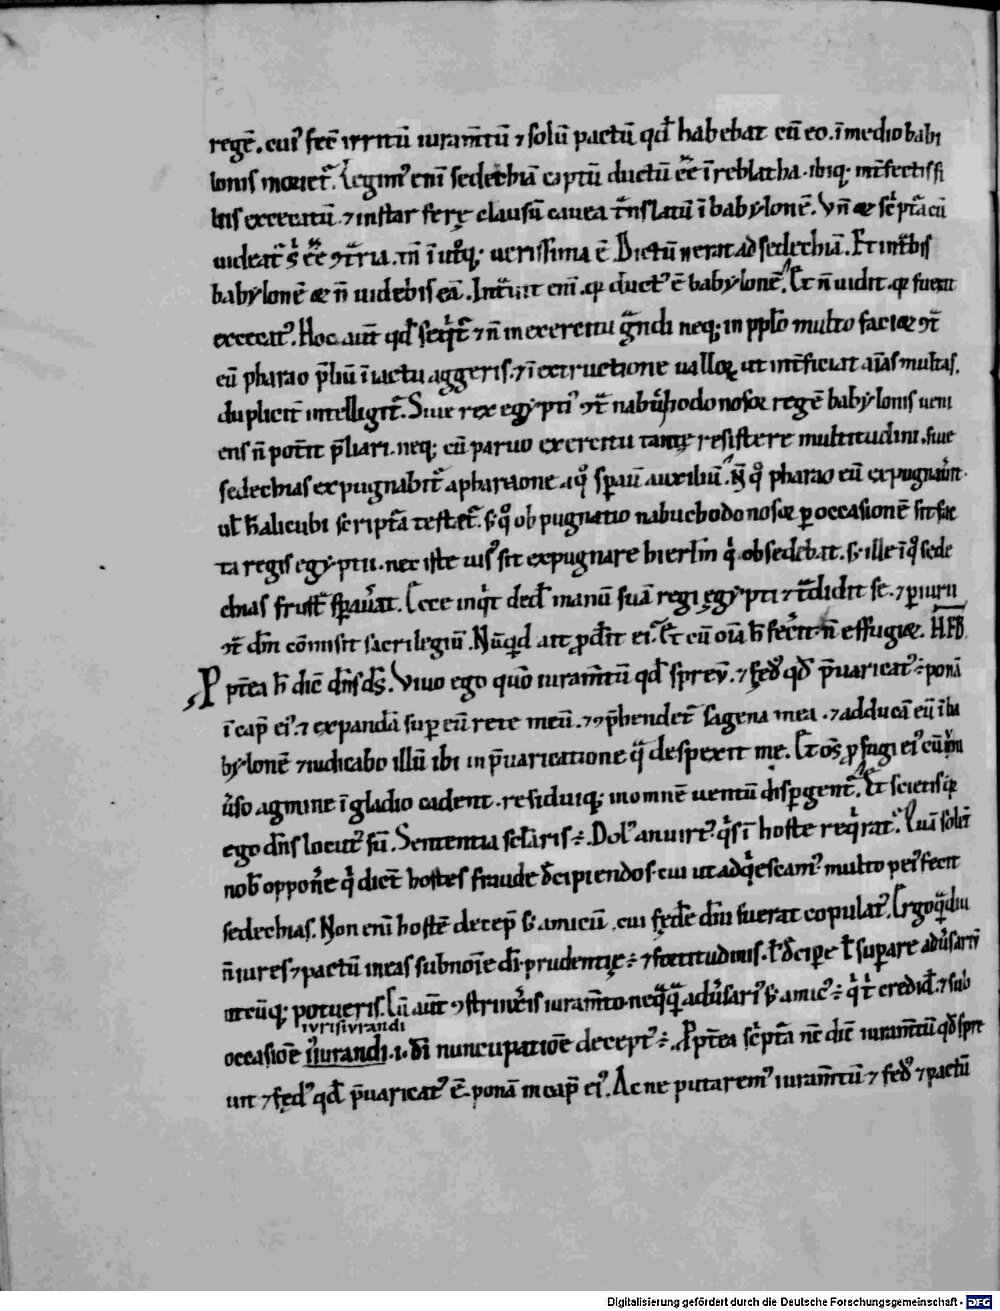 regē. cui᷒ fec̄ irritū iuram̄tū ⁊ solū pactū qd̄ habebat cū eo. ī medio babi
lonis moriet᷑. Legim᷒ enī sedechiā captū ductū eē ī reblatha. ibiq; int̄fectis si
liis excecatū. ⁊ instar ferę clausū cauea t̄nslatū ī babylonē. Vn̄ & sc̄ptā cū
uideat᷑ s eē ⁊t̄ria. tn̄ ī ut̊q; uerissima ē. Dictū n̄ erat ad sedechiā. Et int̄bis
babylonē & n̄ uidebis eā. Int̄uit enī. qͥ duct᷒ ē babylonē. Et n̄ uidit. qͥ fuerat
excecat᷒. Hoc aut̄ qd̄ seqͥt᷑ ⁊ n̄ in exercitu ḡndi neq; in pplo multo faci& ⁊t̄
cū pharao p̄liū ī iactu aggeris. ⁊ ī extructione ualloꝝ ut int̄ficiat aīas multas.
duplicit̄ intelligit᷑. Siue rex egypti ⁊t̄ nabuchodonosor regē babylonis ueni
ens n̄ pot̄it p̄liari. neq; cū paruo exercitu tantę resistere multitudini. siue
sedechias expugnabit᷑ a pharaone a qͦ spauit auxiliū. N̄ qͦ pharao cū expugnauit.
ut h̄ alicubi scriptā testet᷑. s; qͦ obpugnatio nabuchodonosor p occasionē sit fac
ta regis egyptii. nec iste uis᷒ sit expugnare hierl̄m qͥ obsedebat. s; ille ī qͦ sede
chias frust̄ spau̾at. Ecce inqͥt ded̄ manū suā regi egypti ⁊ t̄didit se. ⁊ piurii
⁊t̄ dm̄ cōmisit sacrilegiū. Nūqd ait pdit ei. Et cū oīa h̄ fec̾it n̄ effugi&. HFB.
Pp̄tea h̄ dic̄ dn̄s ds̄. Viuo ego quō iuram̄tū qd̄ sprev̄. ⁊ fęd᷒ qd̄ p̄uaricat᷒ ÷ ponā
ī cap̄ ei᷒. ⁊ expandā sup eū rete meū. ⁊ ꝯp̄hendet᷑ sagena mea. ⁊ adducā eū ī ba
bylonē ⁊ iudicabo illū ibi in p̄uaricatione qͣ despexit me. Et oīs pfugi ei᷒ cū uni
u̾so agmine ī gladio cadent. residuiq; in omnē uentū dispgent᷑. Et scietis qͥ
ego dn̄s locut᷒ sū. Sententia sclaris ÷. Dol᷒ an uirt᷒ qͥs ī hoste reqͥrat. Quā solēt
nob̄ oppon̾e qͥ dic̄t hostes fraude dcipiendos. cui ut adqͥescam᷒ multo pei᷒ fecit
sedechias. Non enī hostē decep̄ s; amicū. cui fęde dn̄i fuerat copulat᷒. Ergo qͣdiu
n̄ iures ⁊ pactū ineas sub noīe dī. prudentię ÷ ⁊ fortitudinis. t̄ dcipe t̄ supare adu̾sariū
utcūq; potueris. Cū aut̄ ꝯstrinx̾is iuram̄to. neqͣqͣ adu̾sari᷒ s; amic᷒ ÷ qͥ t̄ credid̄. ⁊ sub
iurisiurandi
occasiōe iurandi .i. dī nuncupatiōe decept᷒ ÷. Pp̄tea sc̄ptā nc̄ dic̄ iuram̄tū qd̄ spre
uit ⁊ fęd᷒ qd̄ p̄uaricat᷒ ē. ponā in cap̄ ei᷒. Ac ne putarem᷒ iuram̄tū ⁊ fęd᷒ ⁊ pactū
Digitalisierung gefördert durch die Deutsche Forschungsgemeinschaft - DFG